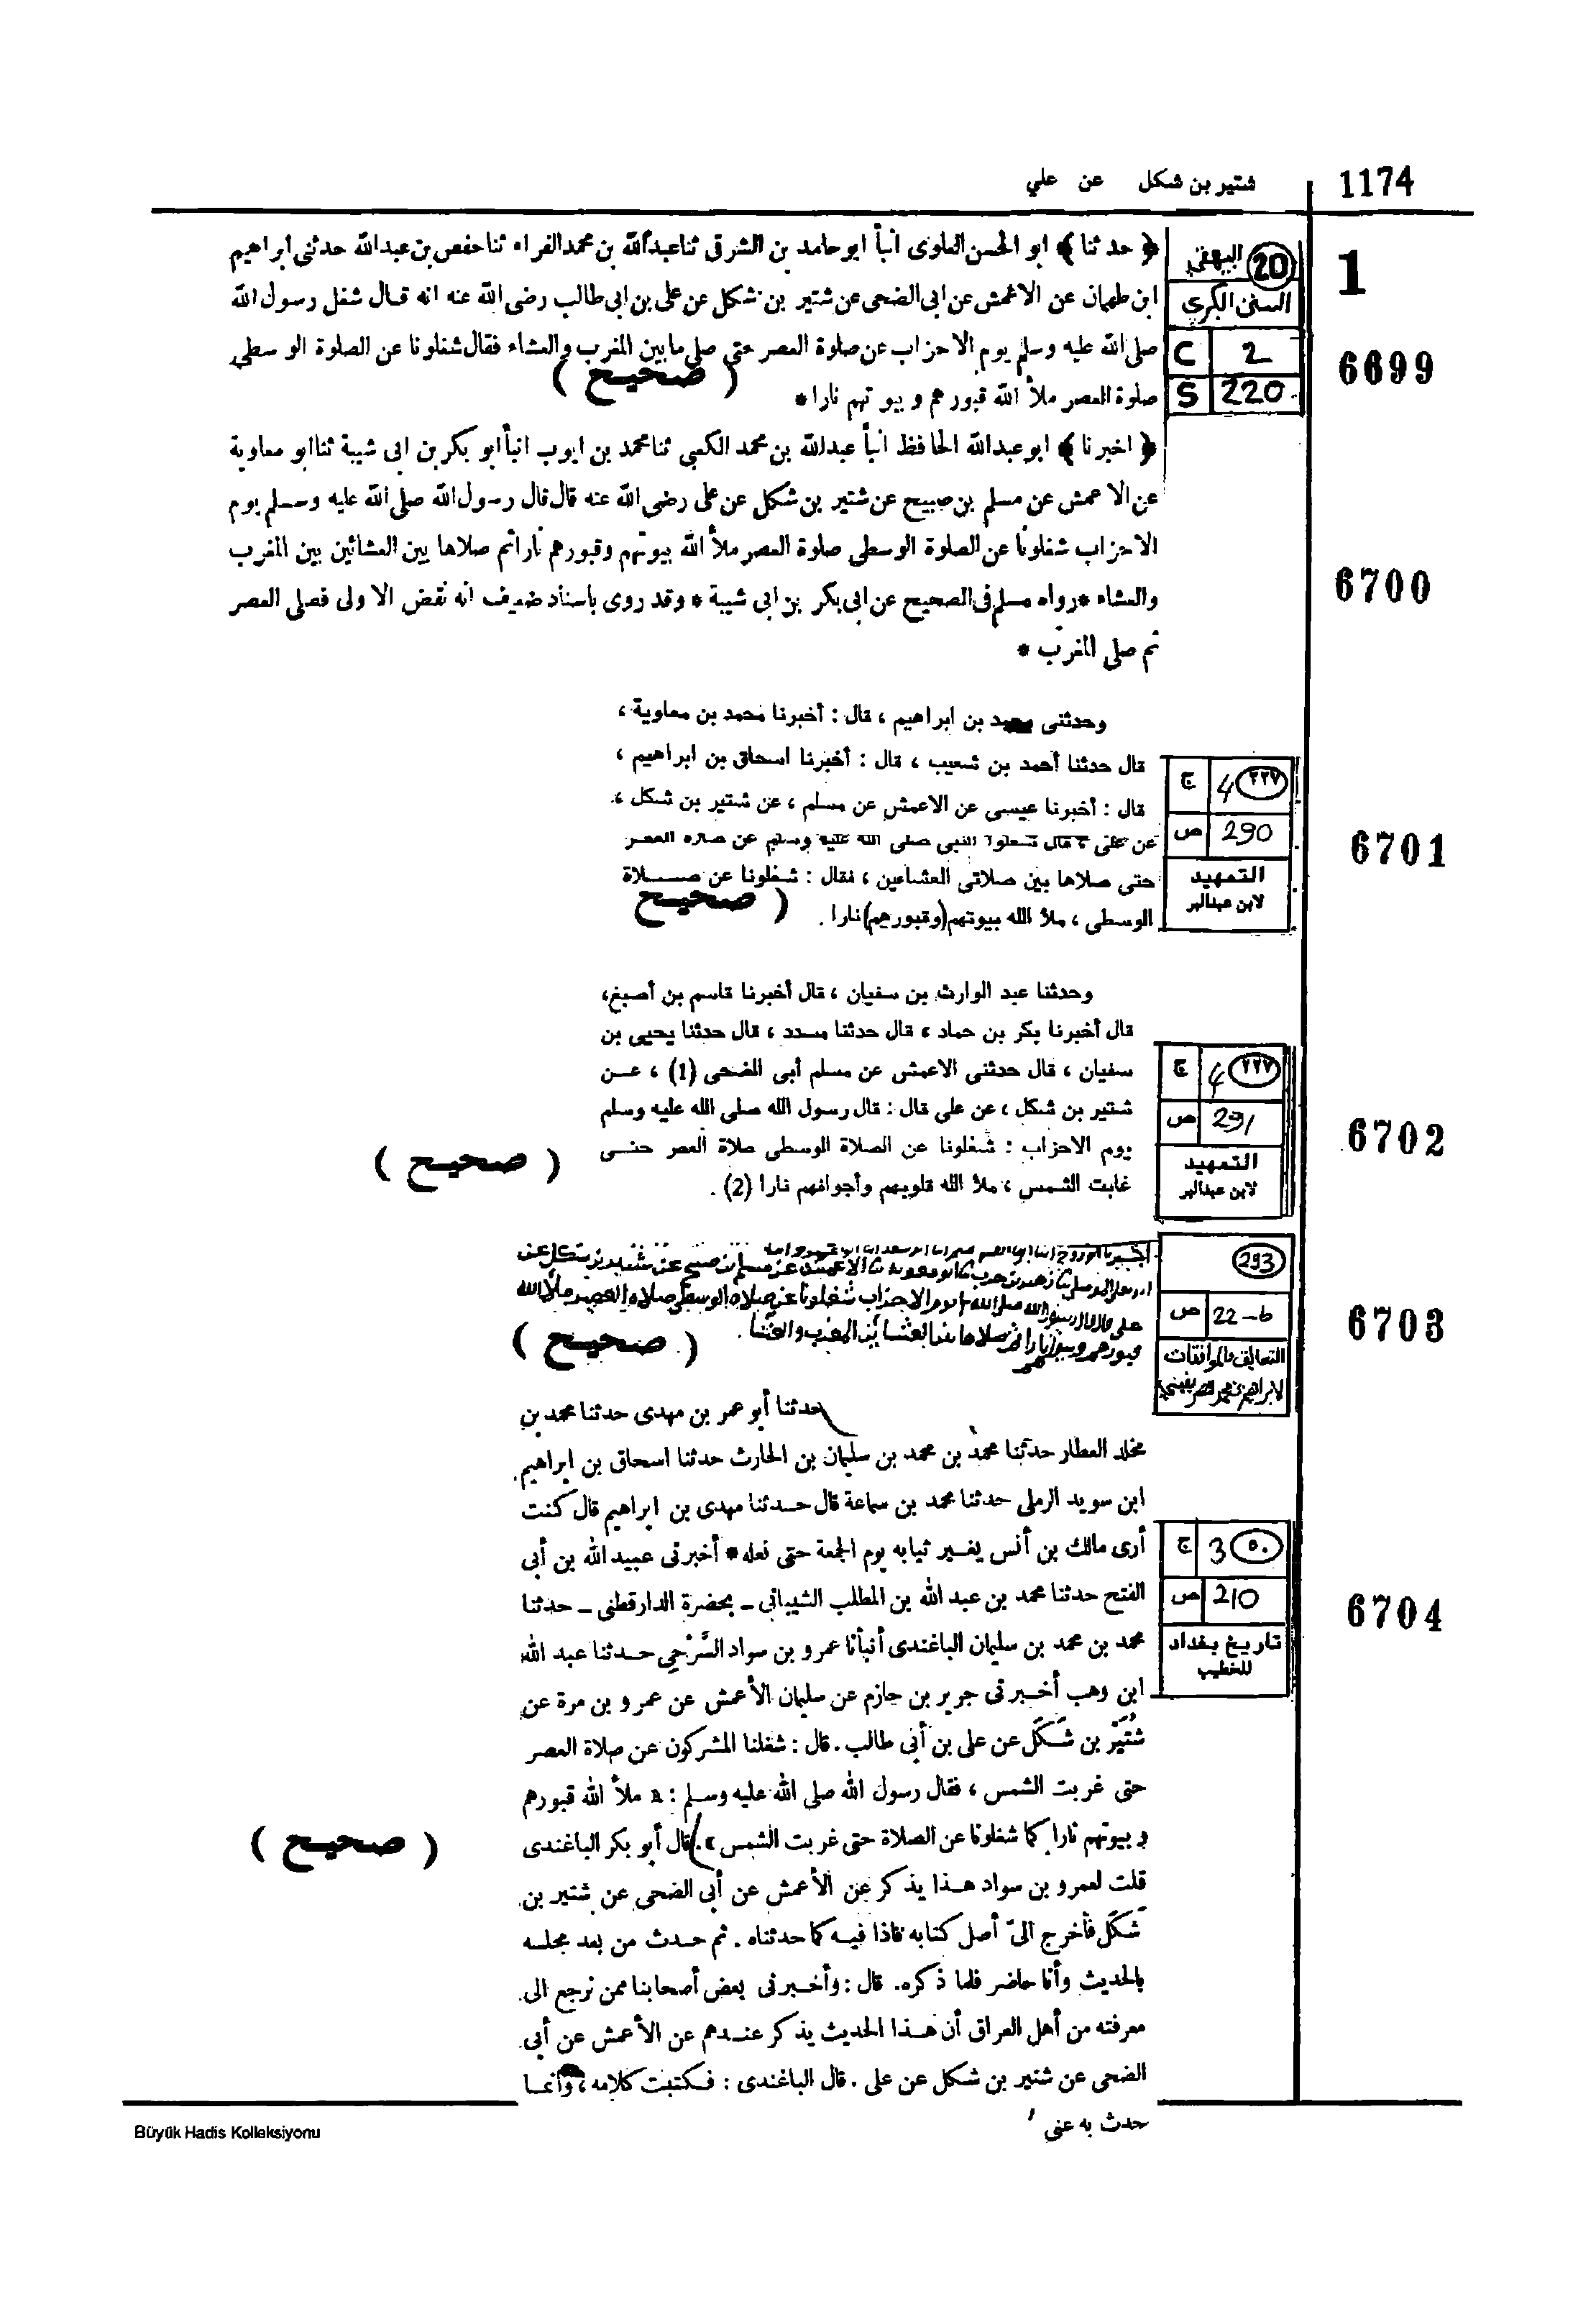 1174
شتير بن شكل عن علي
1
20 البيهقي
السنن الكبرى
C 2
S 220
6699
﴿ حدثنا ﴾ ابو الحسن العلوى انبأ ابو حامد بن الشرقى ثنا عبدالله بن محمد الفراء ثنا حفص بن عبدالله حدثنى ابراهيم
ابن طهمان عن الاعمش عن ابى الضحى عن شتير بن شكل عن على بن ابى طالب رضى الله عنه انه قال شغل رسول الله
صلى الله عليه وسلم يوم الاحزاب عن صلوة العصر حتى صلى ما بين المغرب والعشاء فقال شغلونا عن الصلوة الوسطى
صلوة العصر ملأ الله قبورهم وبيوتهم نارا *
( صحيح )
6700
﴿ اخبرنا ﴾ ابو عبدالله الحافظ انبأ عبدالله بن محمد الكعبى ثنا محمد بن ايوب انبأ ابو بكر بن ابى شيبة ثنا ابو معاوية
عن الاعمش عن مسلم بن صبيح عن شتير بن شكل عن على رضى الله عنه قال قال رسول الله صلى الله عليه وسلم يوم
الاحزاب شغلونا عن الصلوة الوسطى صلوة العصر ملأ الله بيوتهم وقبورهم نارا ثم صلاها بين العشائين بين المغرب
والعشاء * رواه مسلم فى الصحيح عن ابى بكر بن ابى شيبة * وقد روى باسناد ضعيف انه نقض الاولى فصلى العصر
ثم صلى المغرب *
6701
٢٢٧ 4 ج
290 ص
التمهيد
لابن عبدالبر
وحدثنى محمد بن ابراهيم ، قال : أخبرنا محمد بن معاوية ،
قال حدثنا أحمد بن شعيب ، قال : أخبرنا اسحاق بن ابراهيم ،
قال : أخبرنا عيسى عن الاعمش عن مسلم ، عن شتير بن شكل ،
عن على ، قال شغلوا النبى صلى الله عليه وسليم عن صلاة العصر
حتى صلاها بين صلاتى العشاءين ، فقال : شغلونا عن صلاة
الوسطى ، ملأ الله بيوتهم (وقبورهم) نارا .
( صحيح )
6702
٢٢٧ 4 ج
291 ص
التمهيد
لابن عبدالبر
وحدثنا عبد الوارث بن سفيان ، قال أخبرنا قاسم بن أصبغ،
قال أخبرنا بكر بن حماد ، قال حدثنا مسدد ، قال حدثنا يحيى بن
سفيان ، قال حدثنى الاعمش عن مسلم أبى الضحى (1) ، عن
شتير بن شكل ، عن على قال : قال رسول الله صلى الله عليه وسلم
يوم الاحزاب : شغلونا عن الصلاة الوسطى صلاة العصر حتى
غابت الشمس ، ملأ الله قلوبهم وأجوافهم نارا (2) .
( صحيح )
6703
293
22-b ص
لابراهيم بن محمد
زهير بن حرب الاعمش عن مسلم بن صبيح عن شتير بن شكل عن
على قال قال رسول الله صلى الله يوم الاحزاب شغلونا عن صلاة الوسطى صلاة العصر ملأ الله
قبورهم وبيوتهم نارا ثم صلاها بين العشائين المغرب والعشاء .
( صحيح )
6704
٥٠ 3 ج
210 ص
تاريخ بغداد
للخطيب
حدثنا أبو عمر بن مهدى حدثنا محمد بن
مخلد العطار حدثنا محمد بن محمد بن سليمان بن الحارث حدثنا اسحاق بن ابراهيم
ابن سويد الرملى حدثنا محمد بن سماعة قال حدثنا مهدى بن ابراهيم قال كنت
أرى مالك بن أنس يغير ثيابه يوم الجمعة حتى نعله * أخبرنى عبيد الله بن أبى
الفتح حدثنا محمد بن عبد الله بن المطلب الشيبانى – بحضرة الدارقطنى – حدثنا
محمد بن محمد بن سليمان الباغندى أنبأنا عمرو بن سواد السَّرْحِى حدثنا عبد الله
ابن وهب أخبرنى جرير بن حازم عن سليمان الأعمش عن عمرو بن مرة عن
شُتَيْر بن شَكَل عن على بن أبى طالب . قال : شغلنا المشركون عن صلاة العصر
حتى غربت الشمس ، فقال رسول الله صلى الله عليه وسلم : « ملأ الله قبورهم
وبيوتهم نارا كما شغلونا عن الصلاة حتى غربت الشمس » . قال أبو بكر الباغندى
قلت لعمرو بن سواد هذا يذكر عن الأعمش عن أبى الضحى عن شتير بن
شَكَل فأخرج الىّ أصل كتابه فاذا فيه كما حدثناه . ثم حدث من بعد مجلسه
بالحديث وأنا حاضر فلما ذكره . قال : وأخبرنى بعض أصحابنا ممن نرجع الى
معرفته من أهل العراق أن هذا الحديث يذكر عندهم عن الأعمش عن أبى
الضحى عن شتير بن شكل عن على . قال الباغندى : فكتبت كلامه ، وأنما
حدث به عنى
( صحيح )
Büyük Hadis Kolleksiyonu